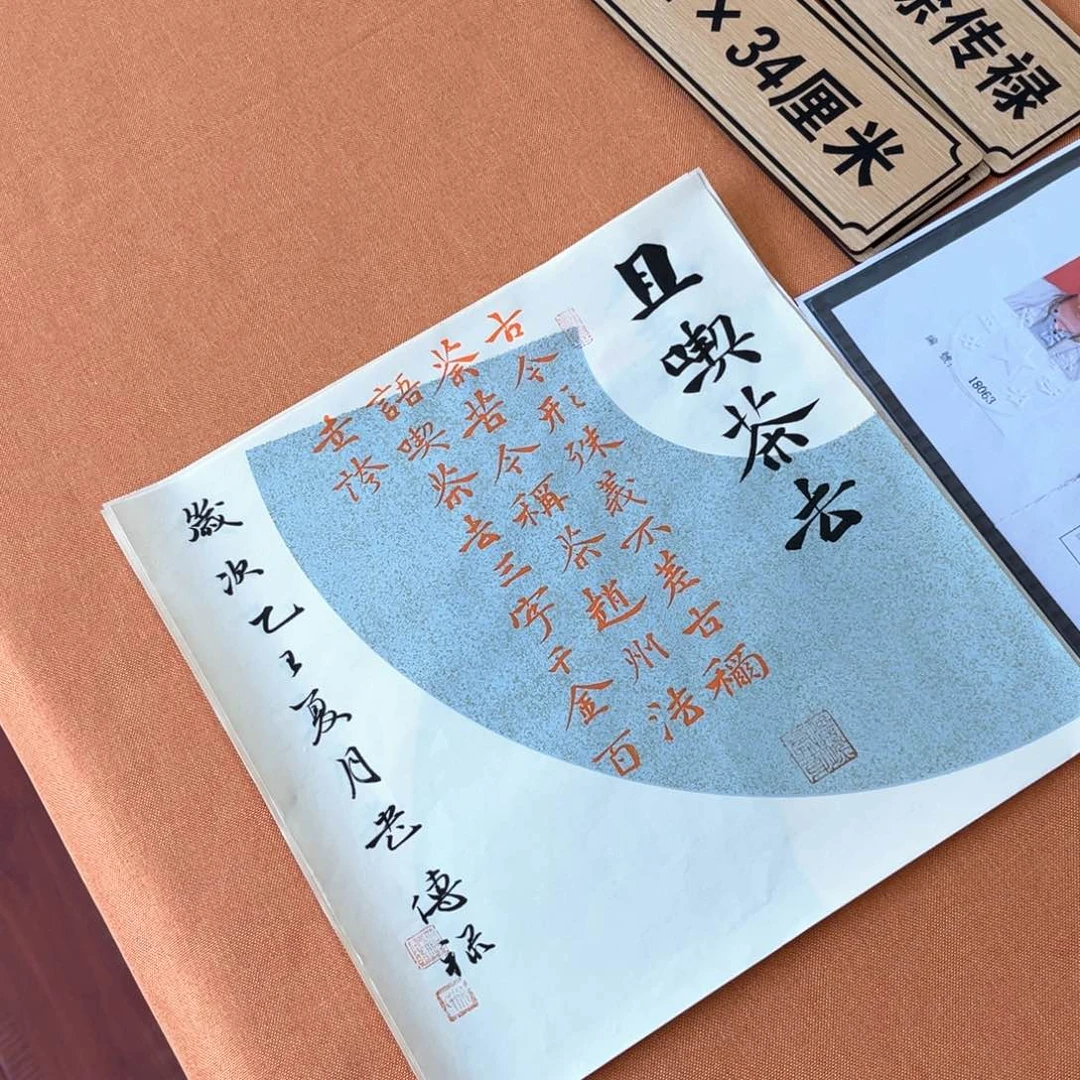 ×34厘米
传禄
18063
且喫茶去
古今形殊義不差古稱
荼苦今稱茶趙州法
語喫茶去三字千金百
世誇
歲次乙巳夏月老傳祿